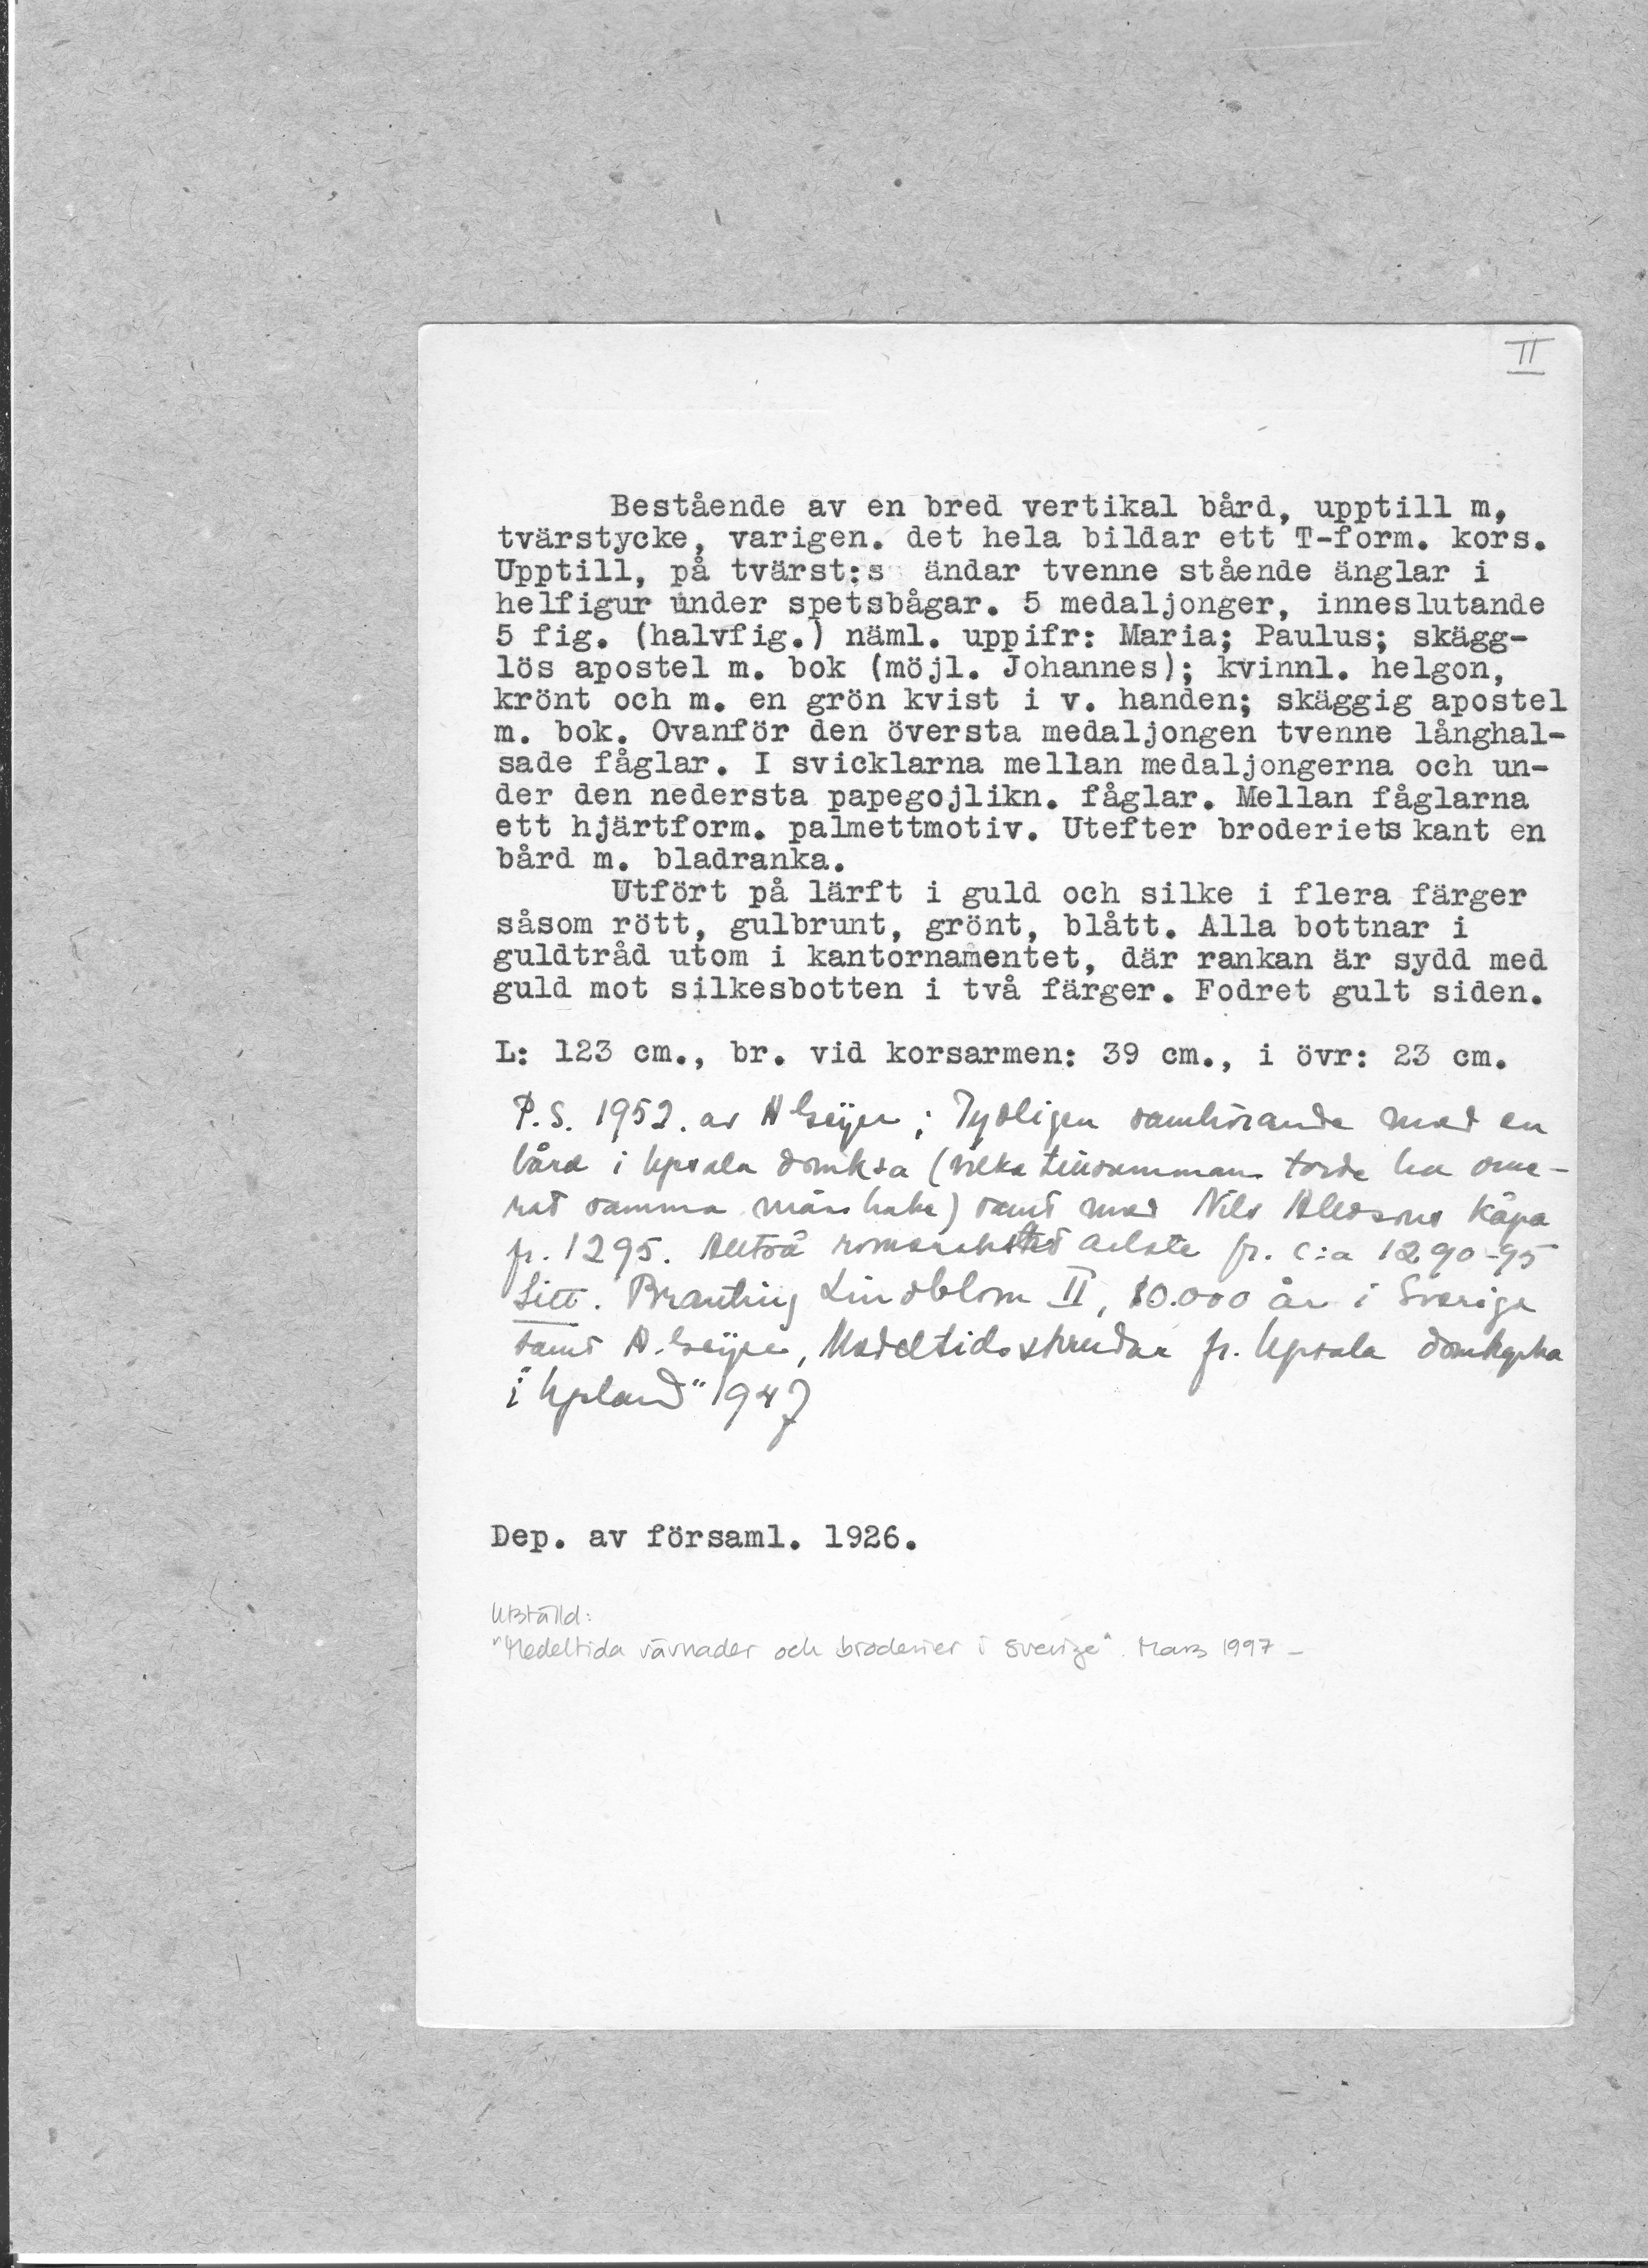 II
Bestående av en bred vertikal bård, upptill m,
tvärstycke, varigen. det hela bildar ett T-form. kors.
Upptill, på tvärst:s ändar tvenne stående änglar i
helfigur under spetsbågar. 5 medaljonger, inneslutande
5 fig. (halvfig.) näml. uppifr: Maria; Paulus; skägg-
lös apostel m. bok (möjl. Johannes); kvinnl. helgon,
krönt och m. en grön kvist i v. handen; skäggig apostel
m. bok. Ovanför den översta medaljongen tvenne långhal-
sade fåglar. I svicklarna mellan medaljongerna och un-
der den nedersta papegojlikn. fåglar. Mellan fåglarna
ett hjärtform. palmettmotiv. Utefter broderiets kant en
bård m. bladranka.
Utfört på lärft i guld och silke i flera färger
såsom rött, gulbrunt, grönt, blått. Alla bottnar i
guldtråd utom i kantornamentet, där rankan är sydd med
guld mot silkesbotten i två färger. Fodret gult siden.
L: 123 cm., br. vid korsarmen: 39 cm., i övr: 23 cm.
P.S. 1952. av A Geijer; Tydligen samhörande med en
bård i Upsala (vilka tillsammans torde ha ome-
rat samma mässhake) samt med Nils Allessons Kåpa
fr. 1295. Alltså arbete fr. c:a 1290-95
Litt. Branting Lindblom II, 10.000 år i Sverige
samt A. Geijer, Medeltidsskrudar fr. Upsala domkyrka
i "Upland" 1947
Dep. av församl. 1926.
Utställd:
"Medeltida vävnader och broderier i Sverige". Mars 1997 -